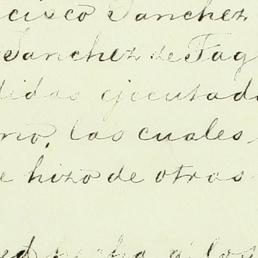 cisco Sanchez
Sanchez de Tag
didas ejecutada
no, las cuales
e hizo de otras